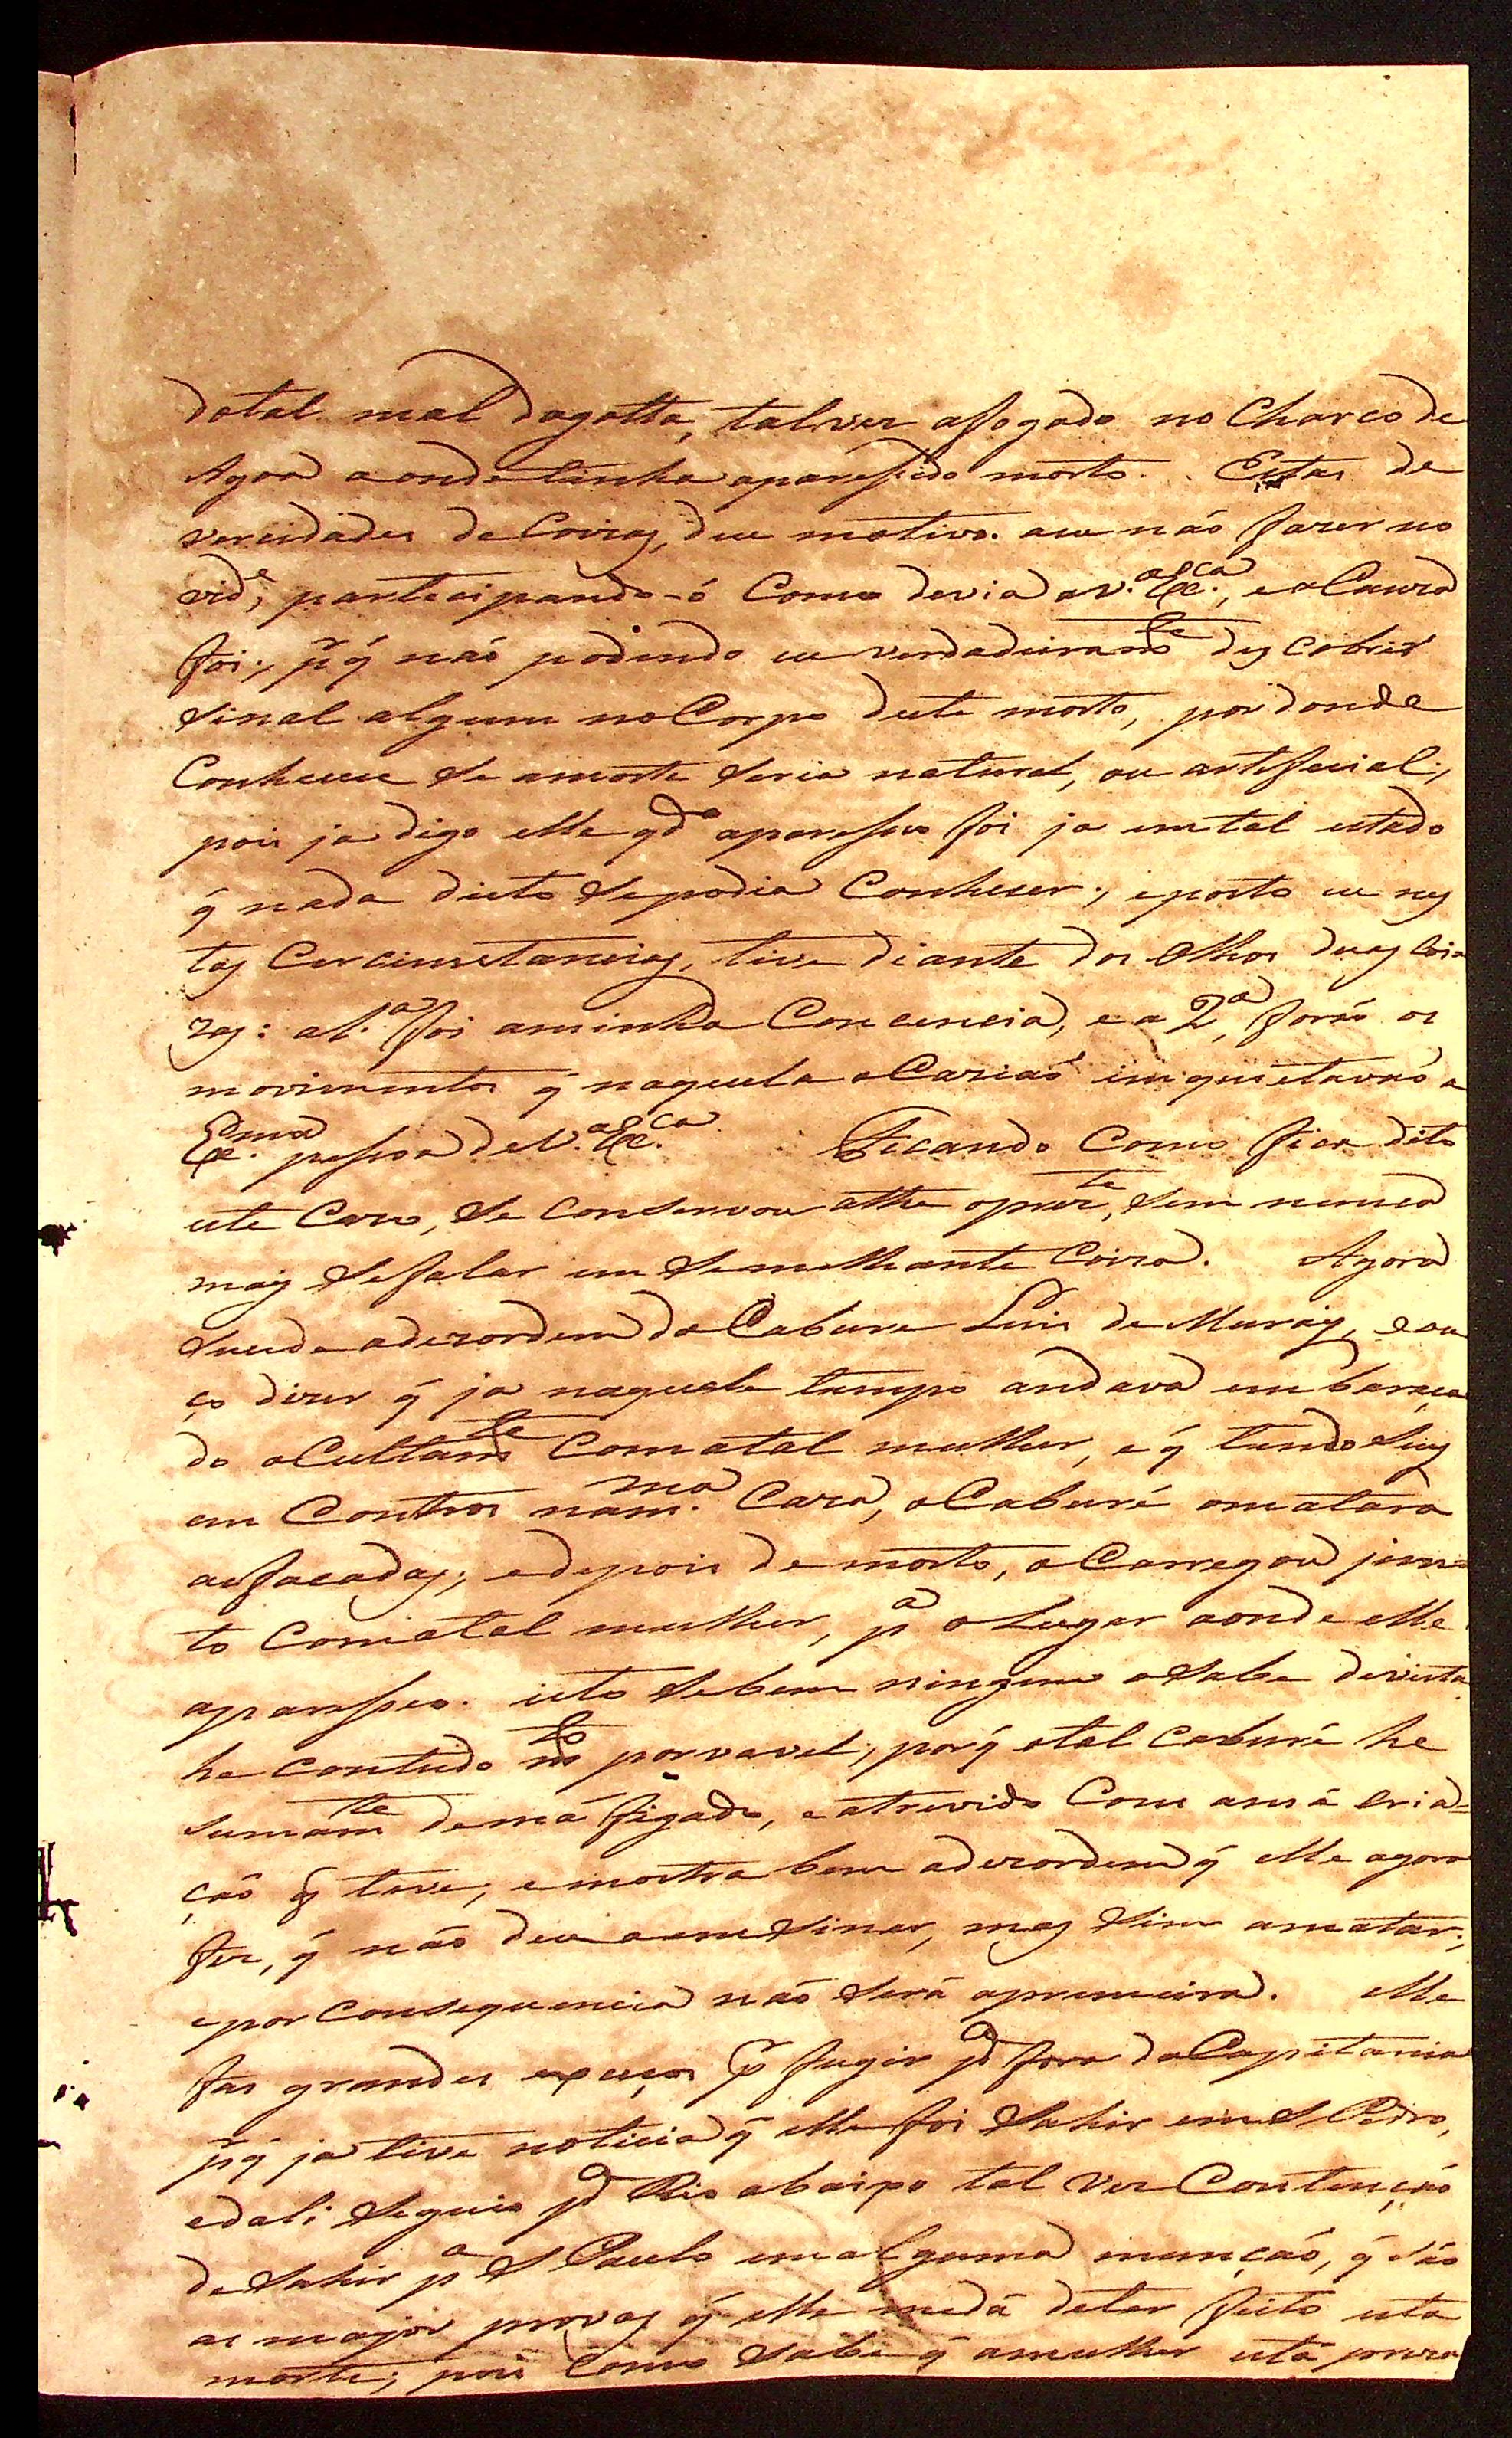 do tal mal dagotta, talver afogado no Charco de
Agoa aonde tinha aparesido morto. Estas de
vercidades de Coizas, deu motivo. aeu não fazer no
vid.e, partecipando-ó Como devia a V. Ex.ca, e a Cauza
foi; p.r q̃ não podendo eu verdadeiram.te descobrir
Sinal algum no Corpo deste morto, por donde
Conhecece Se amorte Seria natural, ou artefecial;
pois ja digo elle q.do aparesseo foi ja em tal estado
q̃ nada disto Sepodia Conhecer; eposto eu nes
tas Cercunstancias, tive diante dos olhos duas Coi
zas: a 1.a foi aminha Concencia, e a 2.a, forão os
movimentos q̃ naquela oCazião inquietavão a
Ex.ma pessoa de V. Ex.ca Ficando Como fica dito
este Cazo, Se Conservou athe oprez.te, Sem nunca
mais Sefalar em Semelhante Coiza. Agora
Sucede adezordem do Cabure Luis de Murais, e ou
ço dizer q̃ ja naquele tempo andava embaraça
do oCultam.te Comatal mulher, e q̃ tendo Seus
en Contros nam.ma Caza, o Caburé omatara
asfacadas; edepois de morto, o Carregou jun=
to Comatal mulher, p.a o Lugar aonde elle
aparesseo. isto Sebem ningem o Sabe devista
he contudo m.to porvavel; porq̃ otal Caburé he
Sumam.te demá figado, e atrevido Com amá cria=
ção q̃ teve, emostra bem adezordem q̃ elle agora
fez, q̃ não deu aemSinar, mas Sim amatar;
epor Consequencia não Será aprimeira. elle
fas grandes expeços p.r fugir p.a fora da Capitania
p.r q̃ ja tive noticia q̃ elle foi Sahir em S Pedro,
edali Seguio p.a Rio abaixo tal vez Contenção
de Sahir p.a S Paulo em alguma munção, q̃ são
as major provas q̃ elle medá deter feito esta
morte; pois Como Sabe q̃ amulher está preza